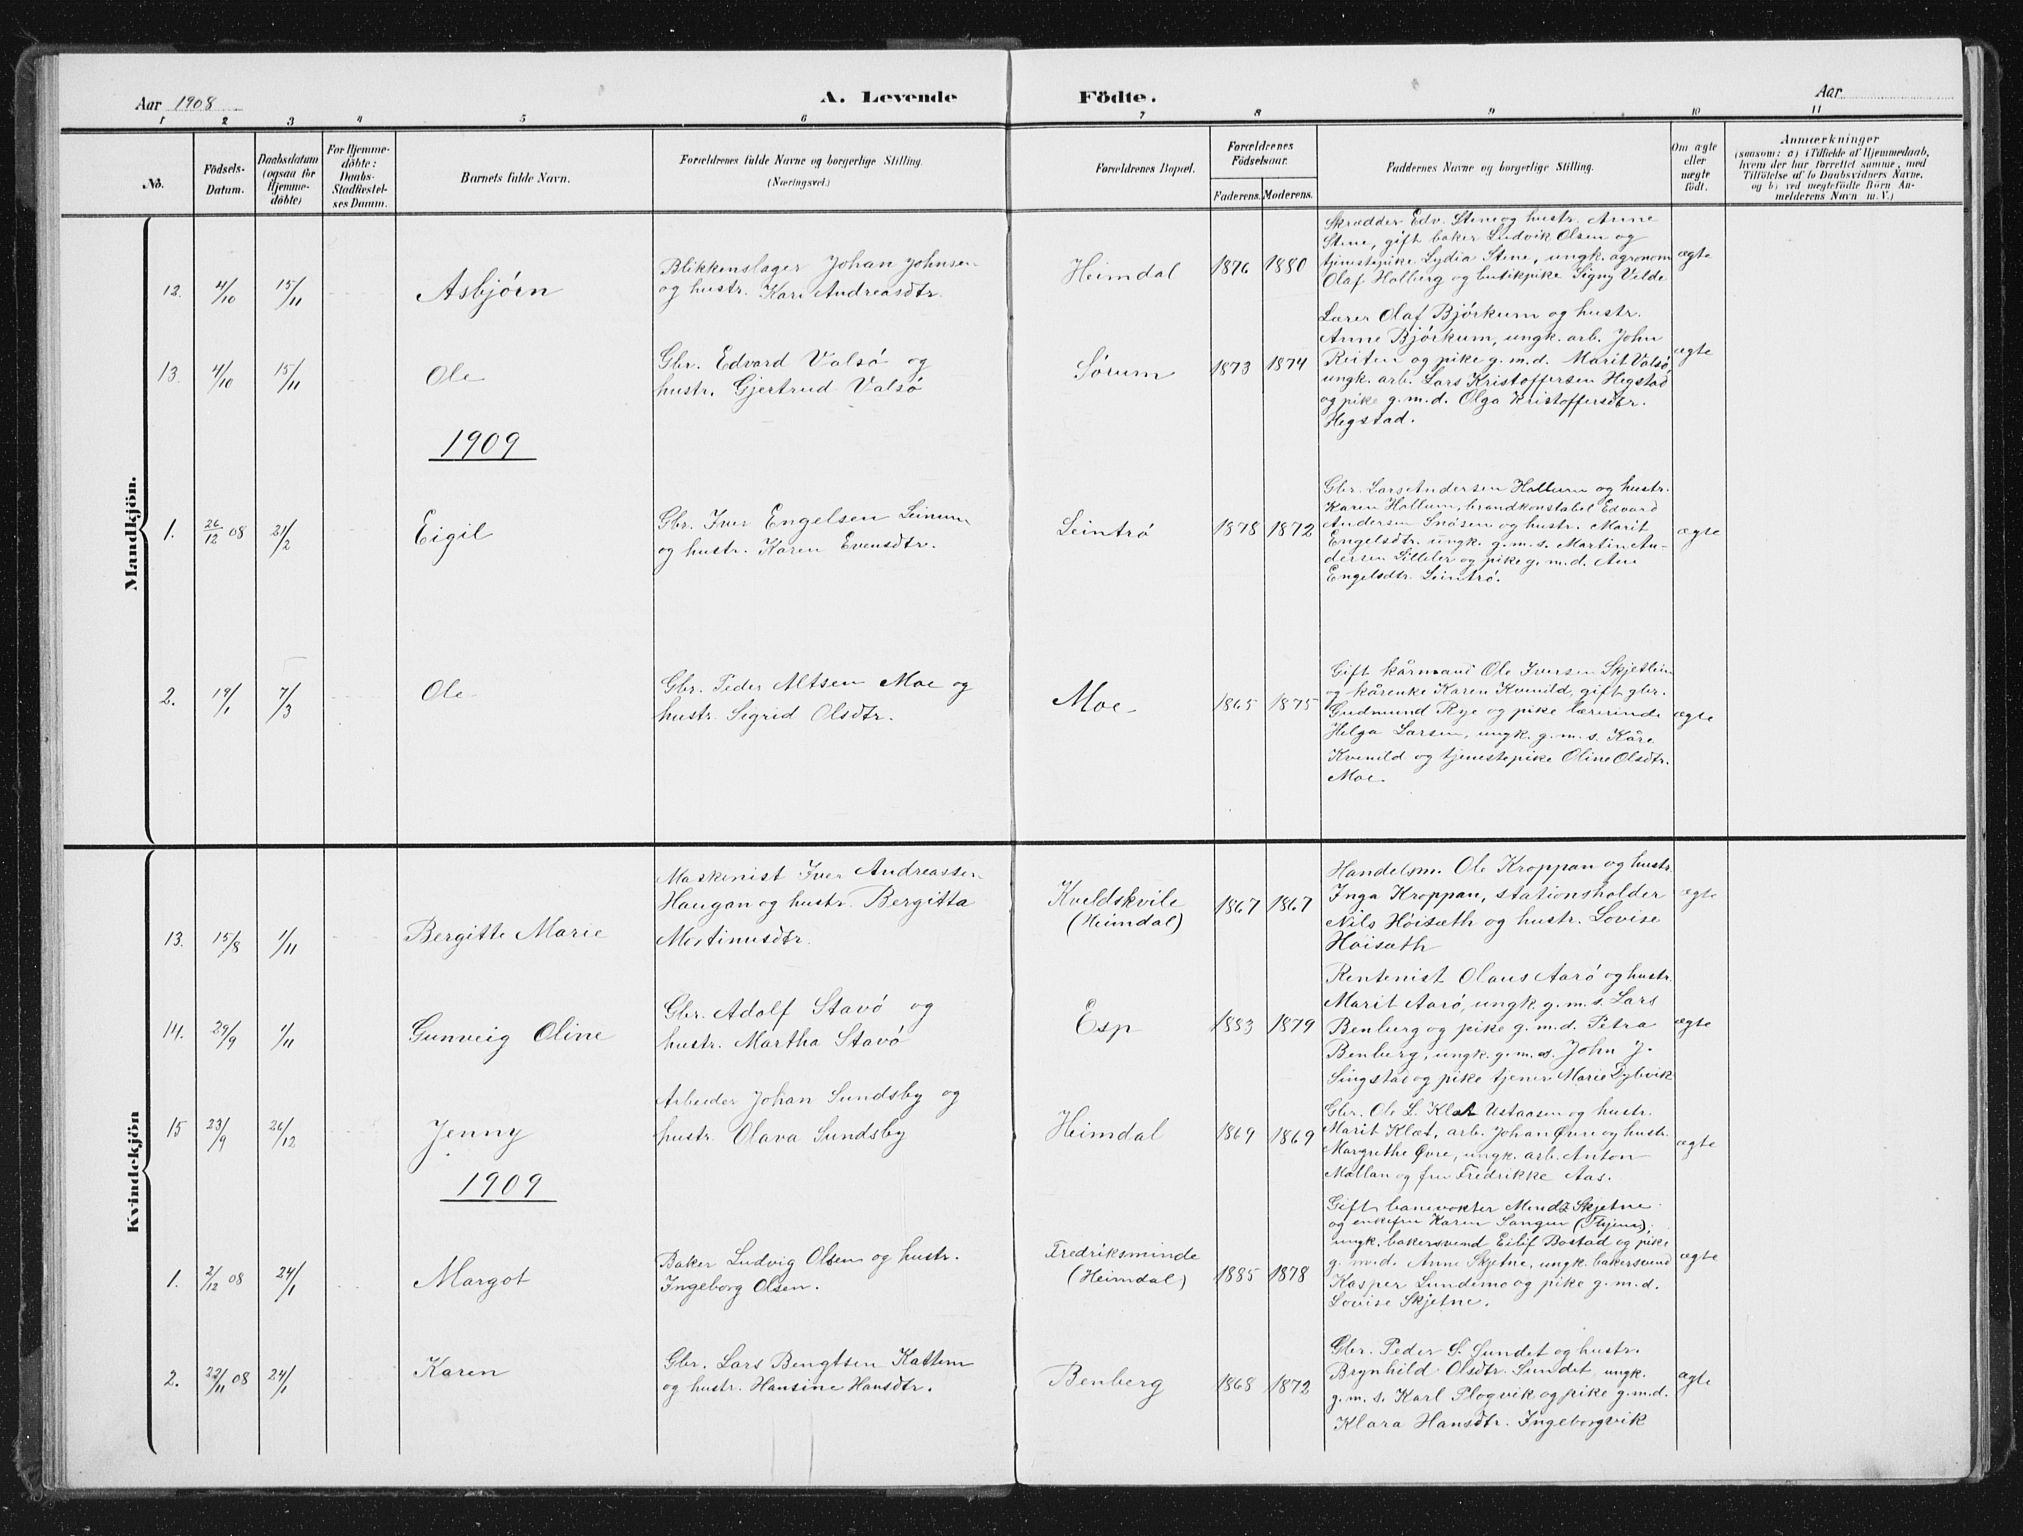 Aar 1908
A. Levende Födte.
Aar
1 2 3 4 5 6 7 8 9 10 11
No.
Födsels-
Datum.
Daabsdatum
(ogsaa for
Hjemme-
döbte)
For Hjemme-
döbte:
Daabs-
Stadfæstel-
ses Datum.
Barnets fulde Navn.
Forældrenes fulde Navne og borgerlige Stilling.
(Næringsvei.)
Forældrenes Bopæl.
Forældrenes
Födselsaar.
Faderens. Moderens.
Faddernes Navne og borgerlige Stilling.
Om ægte
eller
uægte
födt.
Anmærkninger
(saasom: a) i Tilfælde af Hjemmedaab,
hvem der har forrettet samme, med
Tilföielse af to Daabsvidners Navne,
og b) ved uægtefödte Börn An-
melderens Navn m. V.)
Mandkjön.
12. 4/10 15/11 Asbjörn
Blikkenslager Johan Johnsen
og hustr. Kari Andreasdtr.
Heimdal 1876 1880
Skrædder Edv. Stene og hustr. Anne
Stene, gift baker Ludvik Olsen og
tjenestepike Lydia Stene, ungk. agronom
Olaf Halberg og butikpike Signy Velde
ægte
13. 4/10 15/11 Ole
Gbr. Edvard Valsö og
hustr. Gjertrud Valsö
Sörum 1873 1874
Lærer Olaf Björkum og hustr.
Anne Björkum, ungk. arb. John
Reiten og pike g.m.d. Marit Valsö,
ungk. arb. Lars Kristoffersen Hegstad
og pike g.m.d. Olga Kristoffersdtr.
Hegstad.
ægte
1909
1. 26/12 08 21/2 Eigil
Gbr. Iver Engelsen Leinum
og hustr. Karen Evensdtr.
Leintrö 1878 1872
Gbr. Lars Andersen Hallum og hustr.
Karen Hallum, brandkonstabel Edvard
Andersen Snösen og hustr. Marit
Engelsdtr. ungk. g.m.s. Martin An-
dersen Lilleler og pike g.m.d. Ane
Engelsdtr. Leintrö.
ægte
2. 19/1 7/3 Ole
Gbr. Peder Altsen Moe og
hustr. Sigrid Olsdtr.
Moe 1865 1875
Gift kårmand Ole Iversen Skjetlein
og kårenke Karen Kvenild, gift gbr.
Gudmund Rye og pike lærerinde
Helga Larsen, ungk. g.m.s. Kåre
Kvenild og tjenestepike Oline Olsdtr.
Moe.
ægte
Kvindekjön
13. 15/8 1/11 Bergitte Marie
Maskenist Iver Andreassen
Haugan og hustr. Bergitta
Martinusdtr.
Kveldskvile
(Heimdal)
1867 1867
Handelsm. Ole Kroppan og hustr.
Inga Kroppan, stationsholder
Nils Höisæth og hustr. Lovise
Höisæth
ægte
14. 29/9 1/11 Gunveig Oline
Gbr. Adolf Stavö og
hustr. Martha Stavö
Esp 1883 1879
Rentenist Olaus Aarö og hustr.
Marit Aarö, ungk. g.m.s. Lars
Benberg og pike g.m.d. Petra
Benberg, ungk. g.m.s. John J.
Singstad og pike tjener Marie Dybvik
ægte
15 23/9 26/12 Jenny
Arbeider Johan Sundsby og
hustr. Olava Sundsby
Heimdal 1869 1869
Gbr. Ole L. Klæt Ustaasen og hustr.
Marit Klæt, arb. Johan Øvre og hustr.
Margrethe Øvre, ungk. arb. Anton
Mallan og fru Fredrikke Aas.
ægte
1909
1. 2/12 08 24/1 Margot
Baker Ludvig Olsen og hustr.
Ingeborg Olsen.
Fredriksminde
(Heimdal)
1885 1878
Gift banevokter Skjetne
og enkefru Karen
ungk. bakersvend Eilif Bostad og pike
g.m.d. Anne Skjetne, ungk. bakersvend
Kasper Lundemo og pike g.m.d.
Lovise Skjetne.
ægte
2. 22/11 08 24/1 Karen
Gbr. Lars Bengtsen Kattem
og hustr. Hansine Hansdtr.
Benberg 1868 1872
Gbr. Peder S. Sundet og hustr.
Brynhild Olsdtr. Sundet, ungk.
g.m.s. Karl Plogvik og pike g.m.d.
Klara Hansdtr. Ingeborgvik
ægte